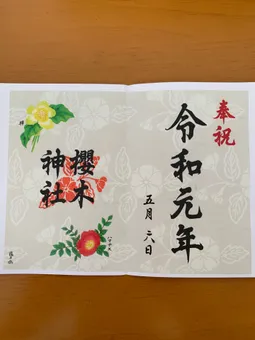 奉祝
令和元年
五月六日
櫻木
神社